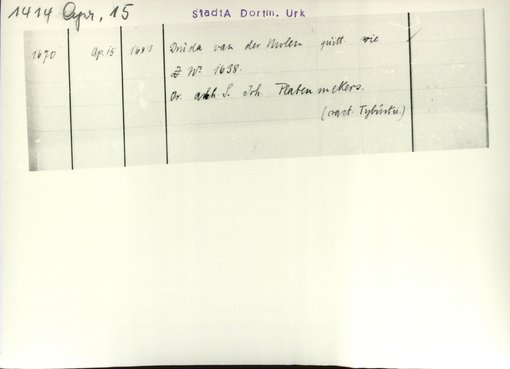 1414 Apr. 15
StadtA Dortm. Urk
1670 Ap. 15 1691 Druda van der Molen quitt. wie
z Nº 1638.
Or. anh S. Joh. Platenmekers.
(crast. Tyburtii.)